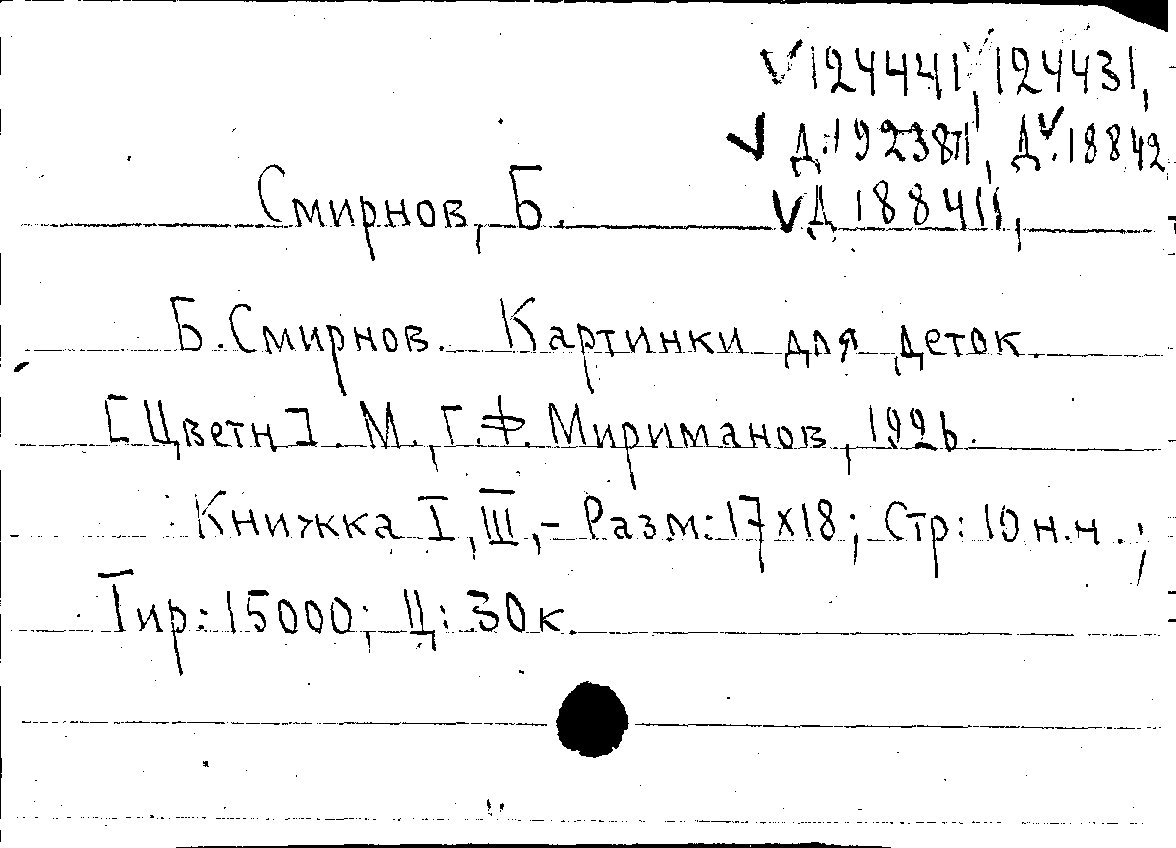 ✓124441, ✓124431,
✓ Д:192381, Д✓:18842
✓Д 18841,
Смирнов, Б.
Б.Смирнов. Картинки для деток.
[Цветн]. М., Г.Ф. Мириманов, 1926.
Книжка I, III, - Разм: 17х18; Стр: 10 н.н.;
Тир: 15000; Ц: 30к.